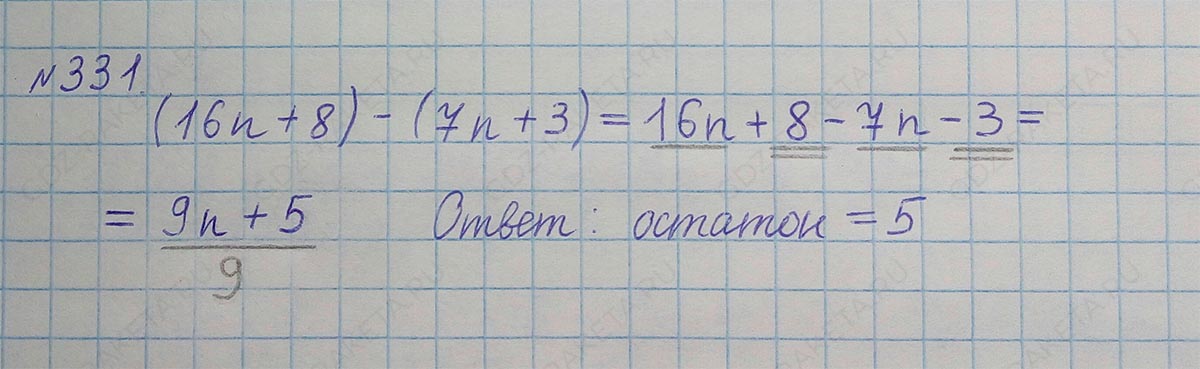 №331.
(16n + 8) - (7n + 3) = 16n + 8 - 7n - 3 =
= 9n + 5 Ответ: остаток = 5
9